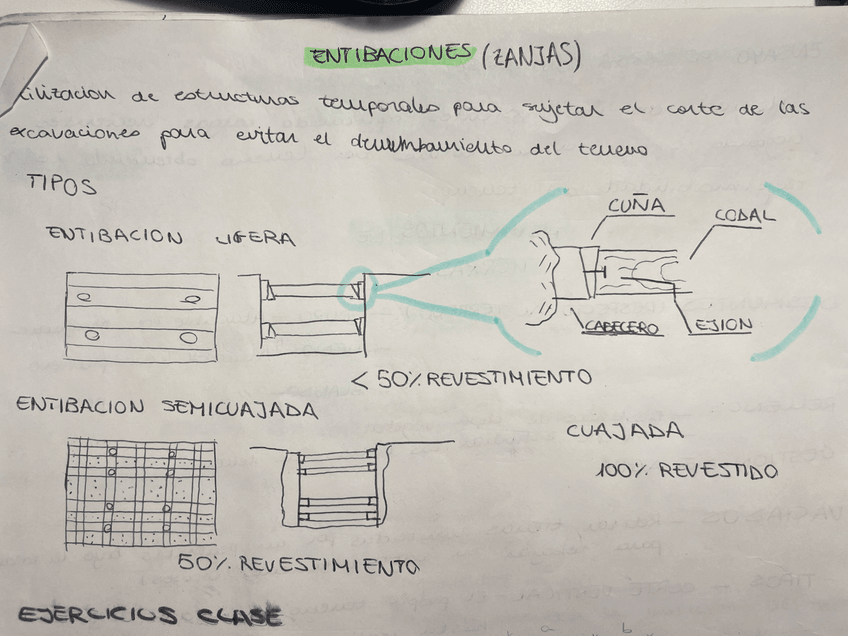 ENTIBACIONES (ZANJAS)
utilización de estructuras temporales para sujetar el corte de las
excavaciones para evitar el derrumbamiento del terreno
TIPOS
ENTIBACION LIGERA
CUÑA
CODAL
CABECERO
EJION
< 50% REVESTIMIENTO
ENTIBACION SEMICUAJADA
CUAJADA
100% REVESTIDO
50% REVESTIMIENTO
EJERCICIOS CLASE